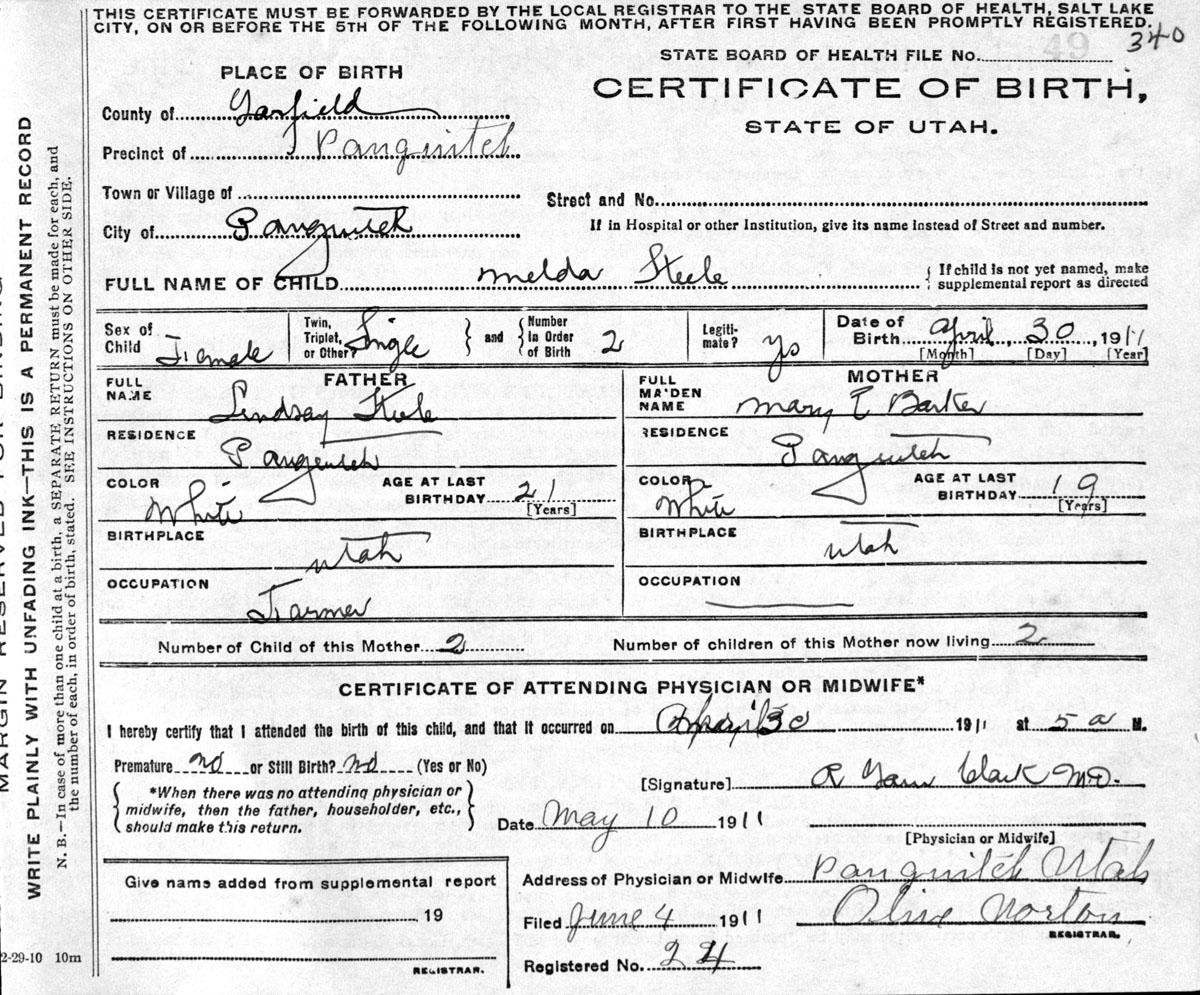 THIS CERTIFICATE MUST BE FORWARDED BY THE LOCAL REGISTRAR TO THE STATE BOARD OF HEALTH, SALT LAKE
CITY, ON OR BEFORE THE 5TH OF THE FOLLOWING MONTH, AFTER FIRST HAVING BEEN PROMPTLY REGISTERED.
340
49
STATE BOARD OF HEALTH FILE No.
CERTIFICATE OF BIRTH,
STATE OF UTAH.
PLACE OF BIRTH
County of Garfield
Precinct of Panguitch
Town or Village of
Street and No.
City of Panguitch
If in Hospital or other Institution, give its name instead of Street and number.
FULL NAME OF CHILD Melda Steele { If child is not yet named, make supplemental report as directed
Sex of Child Female
Twin, Triplet, or Other? Single } and { Number in Order of Birth 2
Legitimate? ys
Date of Birth April 30 1911
[Month] [Day] [Year]
FATHER
FULL NAME Lindsay Steele
RESIDENCE Panguitch
COLOR White
AGE AT LAST BIRTHDAY 21 [Years]
BIRTHPLACE Utah
OCCUPATION Farmer
MOTHER
FULL MAIDEN NAME Mary E Barker
RESIDENCE Panguitch
COLOR White
AGE AT LAST BIRTHDAY 19 [Years]
BIRTHPLACE Utah
OCCUPATION
Number of Child of this Mother 2
Number of children of this Mother now living 2
CERTIFICATE OF ATTENDING PHYSICIAN OR MIDWIFE*
I hereby certify that I attended the birth of this child, and that it occurred on April 30 1911 at 5 a M.
Premature no or Still Birth? no (Yes or No)
[Signature] R Clark MD.
{ *When there was no attending physician or
midwife, then the father, householder, etc.,
should make this return. }
Date May 10 1911
[Physician or Midwife]
Give name added from supplemental report
19
REGISTRAR.
Address of Physician or Midwife Panguitch Utah
Filed June 4 1911 Olive Norton
REGISTRAR.
Registered No. 24
MARGIN RESERVED FOR BINDING
WRITE PLAINLY WITH UNFADING INK—THIS IS A PERMANENT RECORD
N. B.—In case of more than one child at a birth, a SEPARATE RETURN must be made for each, and
the number of each, in order of birth, stated. SEE INSTRUCTIONS ON OTHER SIDE.
2-29-10 10m